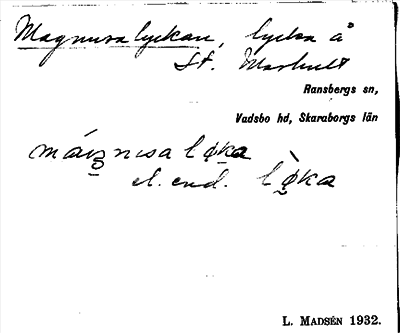 Magnusalyckan, lycka å
St. Markult
Ransbergs sn,
Vadsbo hd, Skaraborgs län
el. end.
L. MADSÉN 1932.